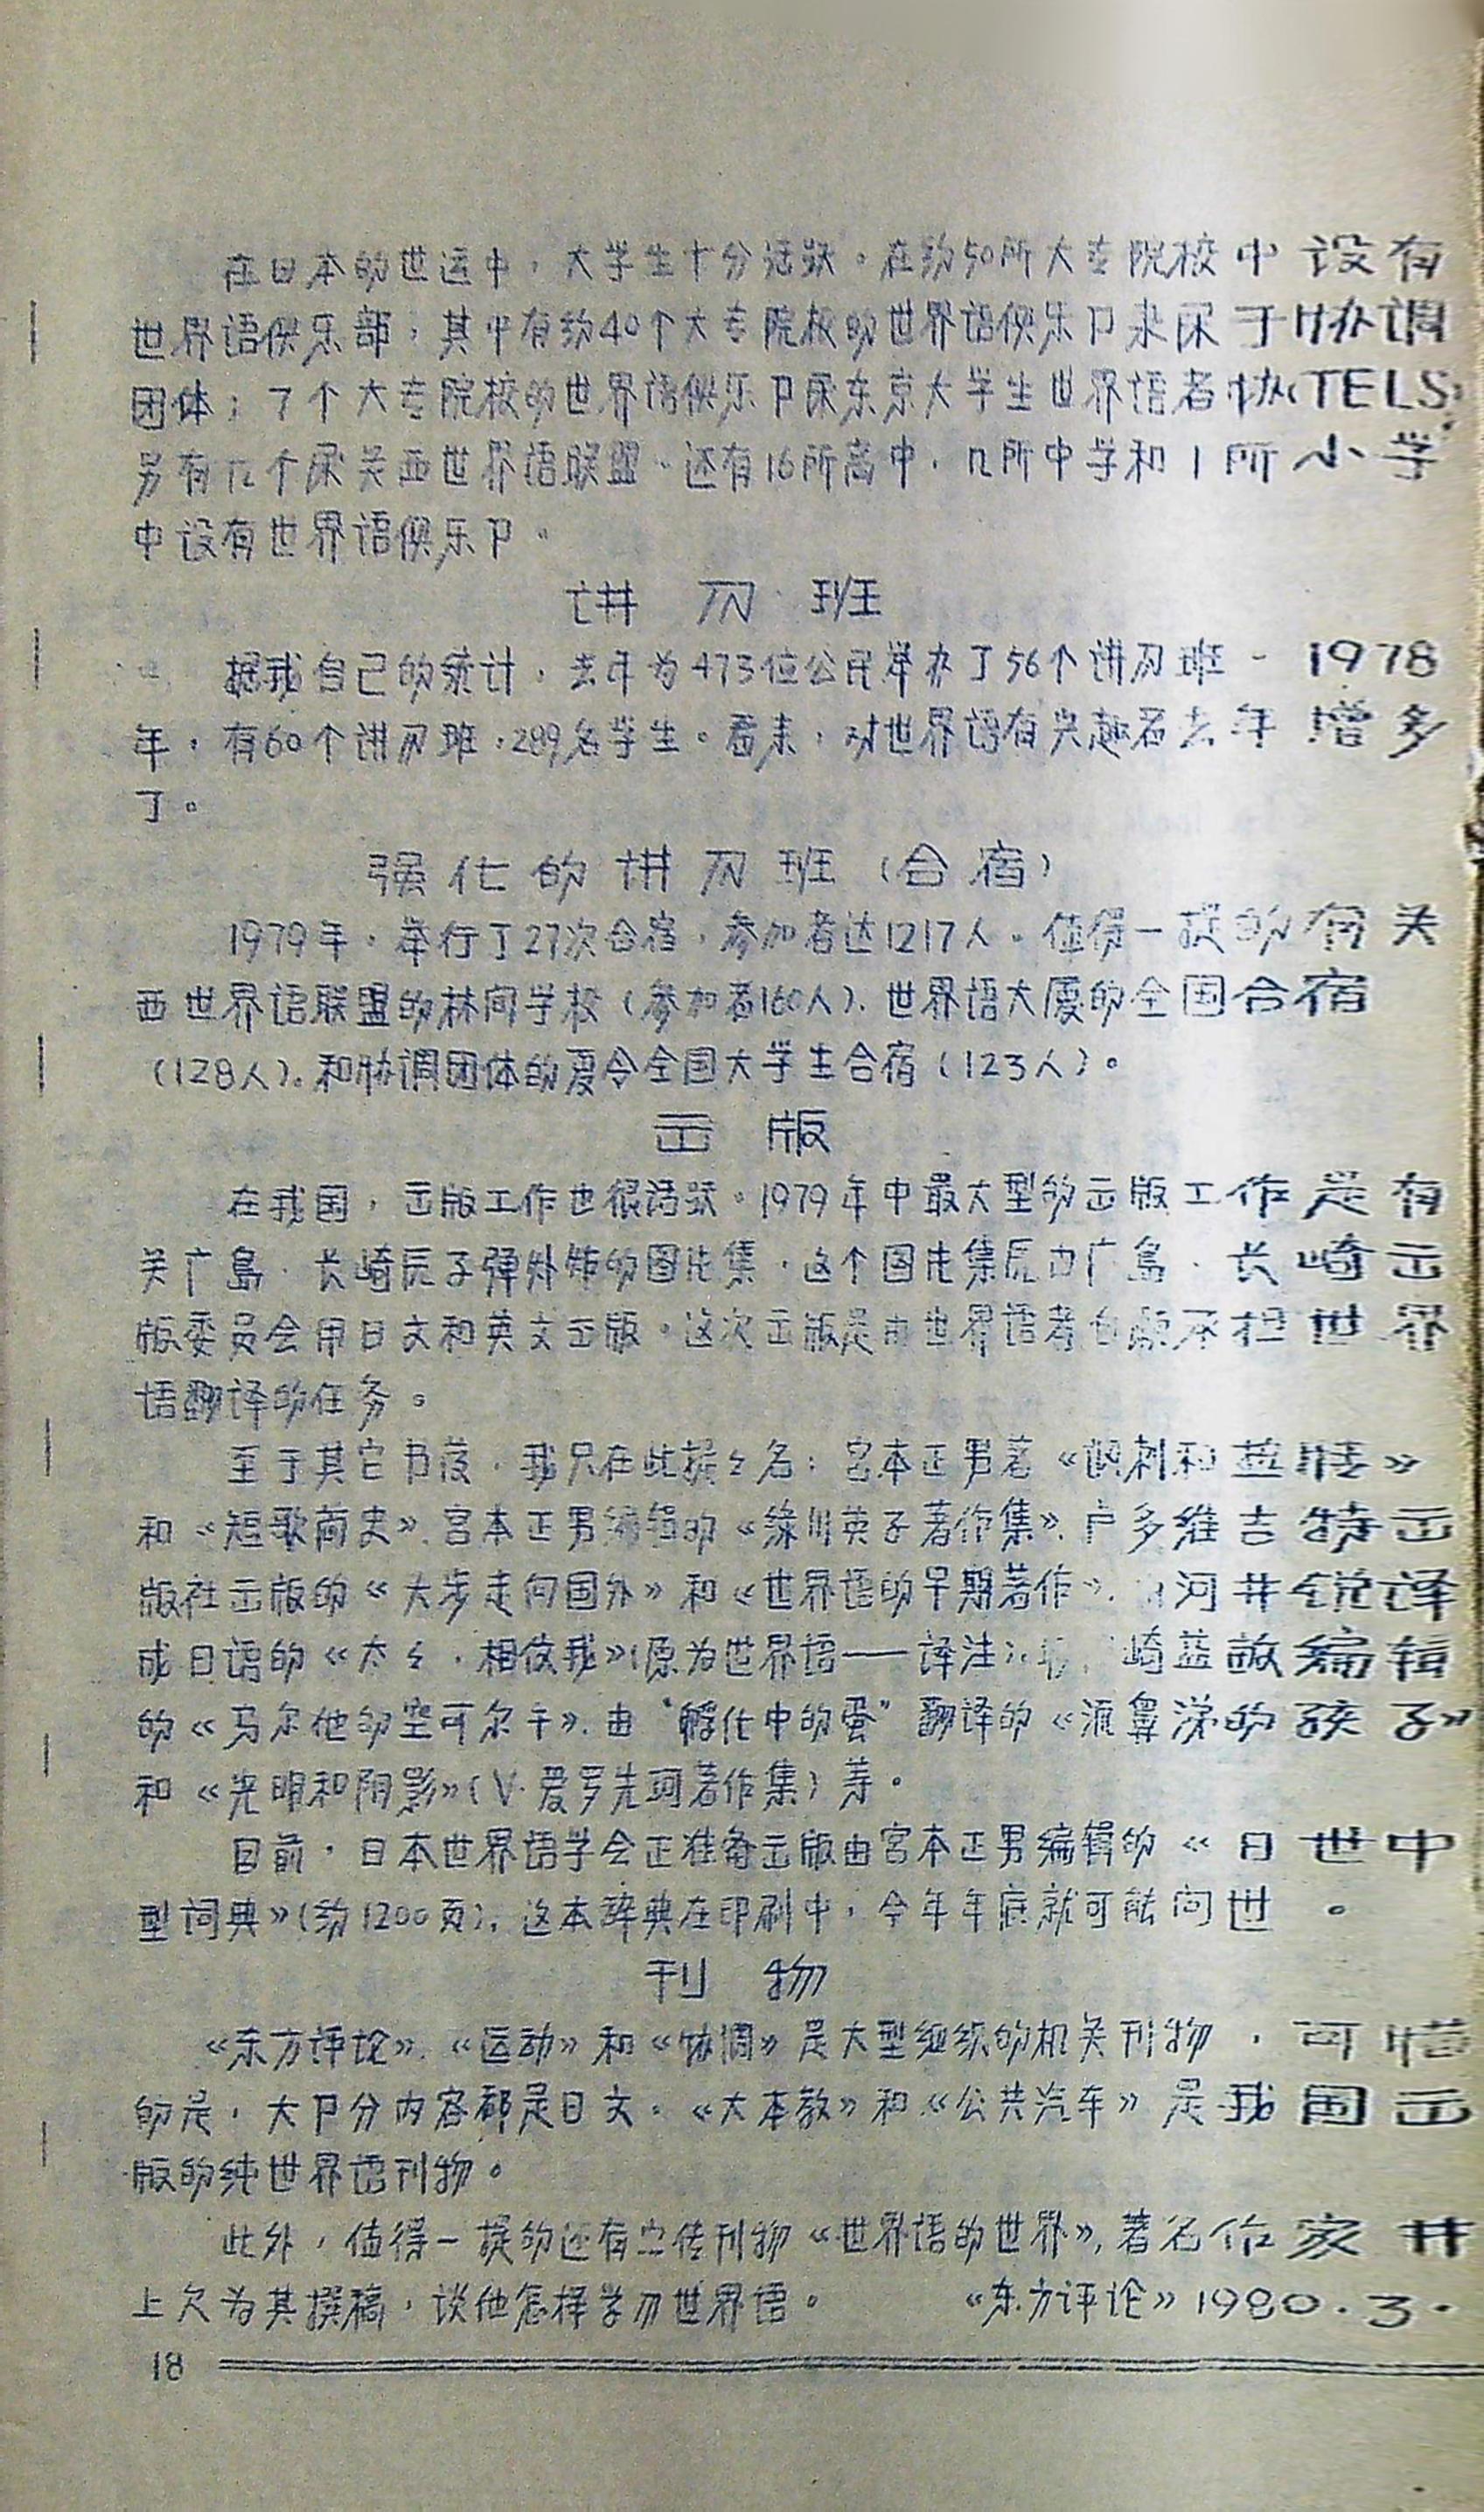 在日本的世运中，大学生十分活跃。在约50所大专院校中设有
世界语俱乐部，其中有约40个大专院校的世界语俱乐卩隶属于协调
团体；7个大专院校的世界语俱乐卩属东京大学生世界语者协(TELS)
另有几个属关西世界语联盟。还有16所高中，几所中学和1所小学
中设有世界语俱乐卩。
讲习班
据我自己的统计，去年为473位公民举办了56个讲习班。1978
年，有60个讲习班，289名学生。看来，对世界语有兴趣者去年增多
了。
强化的讲习班（合宿）
1979年，举行了27次合宿，参加者达1217人。值得一提的有关
西世界语联盟的林间学校（参加者160人）、世界语大厦的全国合宿
（128人）。和协调团体的夏令全国大学生合宿（123人）。
出版
在我国，出版工作也很活跃。1979年中最大型的出版工作是有
关广島、长崎原子弹外炸的图片集，这个图片集原由广島、长崎出
版委员会用日文和英文出版。这次出版是由世界语者自愿承担世界
语翻译的任务。
至于其它书籍，我只在此提々名：宫本正男著《讽刺和
和《短歌简史》、宫本正男编辑的《绿川英子著作集》、卢多维吉特出
版社出版的《大步走向国外》和《世界语的早期著作》、河井锐译
成日语的《大々，相依我》（原为世界语——译注）、崎蓝 编辑
的《马尔他的空可尔干》、由“孵化中的蛋”翻译的《流鼻涕的孩子》
和《光明和阴影》（V·爱罗先珂著作集）等。
目前，日本世界语学会正准备出版由宫本正男编辑的《日世中
型词典》（约1200页），这本辞典在印刷中，今年年底就可能问世。
刊物
《东方评论》、《运动》和《协调》是大型组织的机关刊物，可惜
的是，大卩分内容都是日文。《大本教》和《公共汽车》是我国出
版的纯世界语刊物。
此外，值得一提的还有宣传刊物《世界语的世界》，著名作家井
上欠为其撰稿，谈他怎样学习世界语。 《东方评论》1980.3.
18